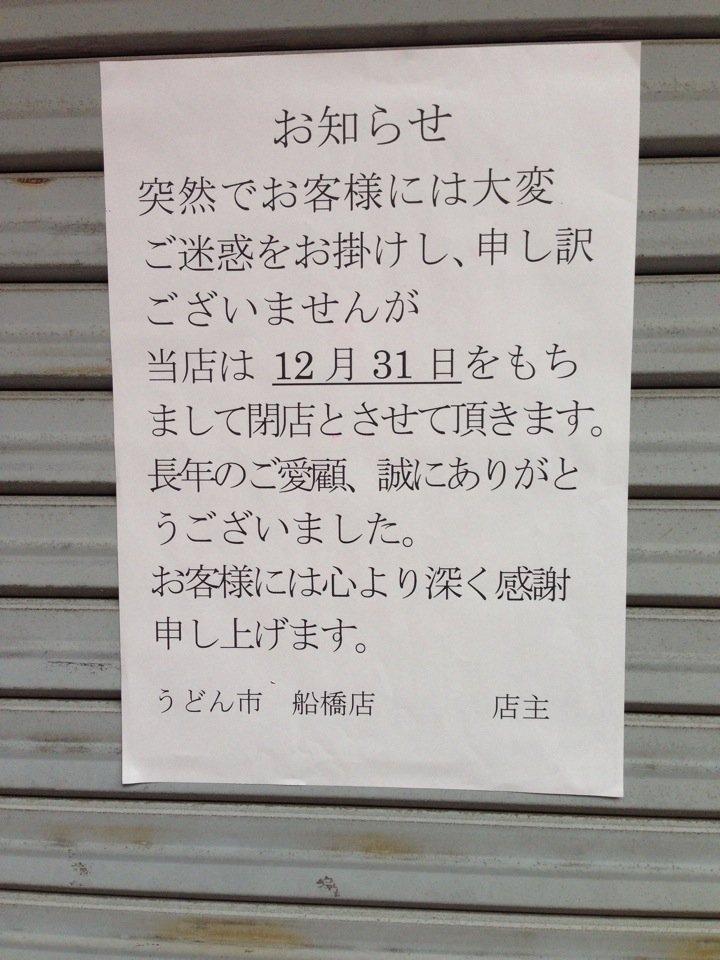 お知らせ
突然でお客様には大変
ご迷惑をお掛けし、申し訳
ございませんが
当店は 12月31日をもち
まして閉店とさせて頂きます。
長年のご愛顧、誠にありがと
うございました。
お客様には心より深く感謝
申し上げます。
うどん市 船橋店 店主